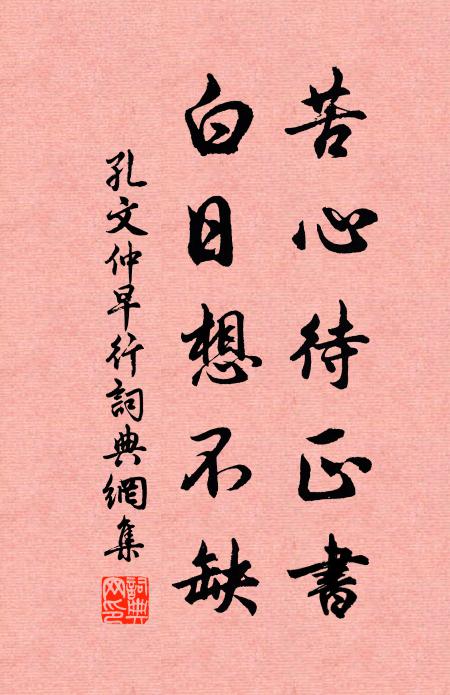 苦心待正書
白日想不缺
孔文仲早行詞典網集
詞典网印